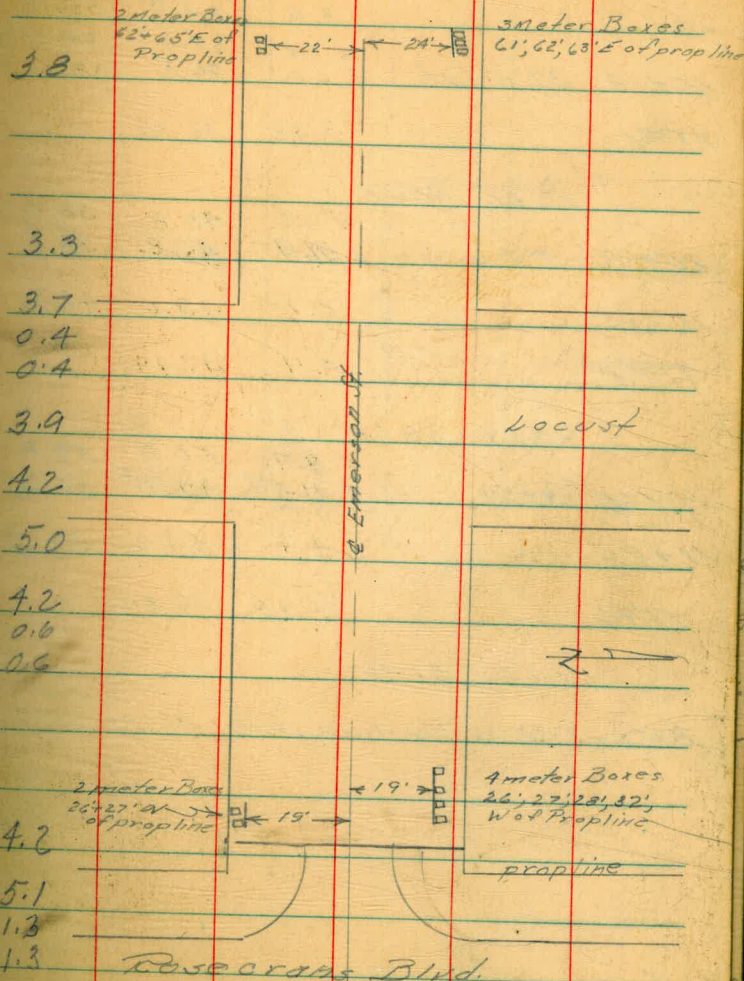 2 meter Boxes
62'+65' E of
Prop line
22'
24'
3 meter Boxes
61', 62', 63' E of prop line
3.8
3.3
3.7
0.4
0.4
3.9
Locust
4.2
℄ Emerson St.
5.0
4.2
0.6
0.6
N
2 meter Boxes
26'+27' W
of propline
19'
19'
4 meter Boxes
26', 27', 28', 32',
W of Propline
4.2
propline
5.1
1.3
1.3
Rosecrans Blvd.